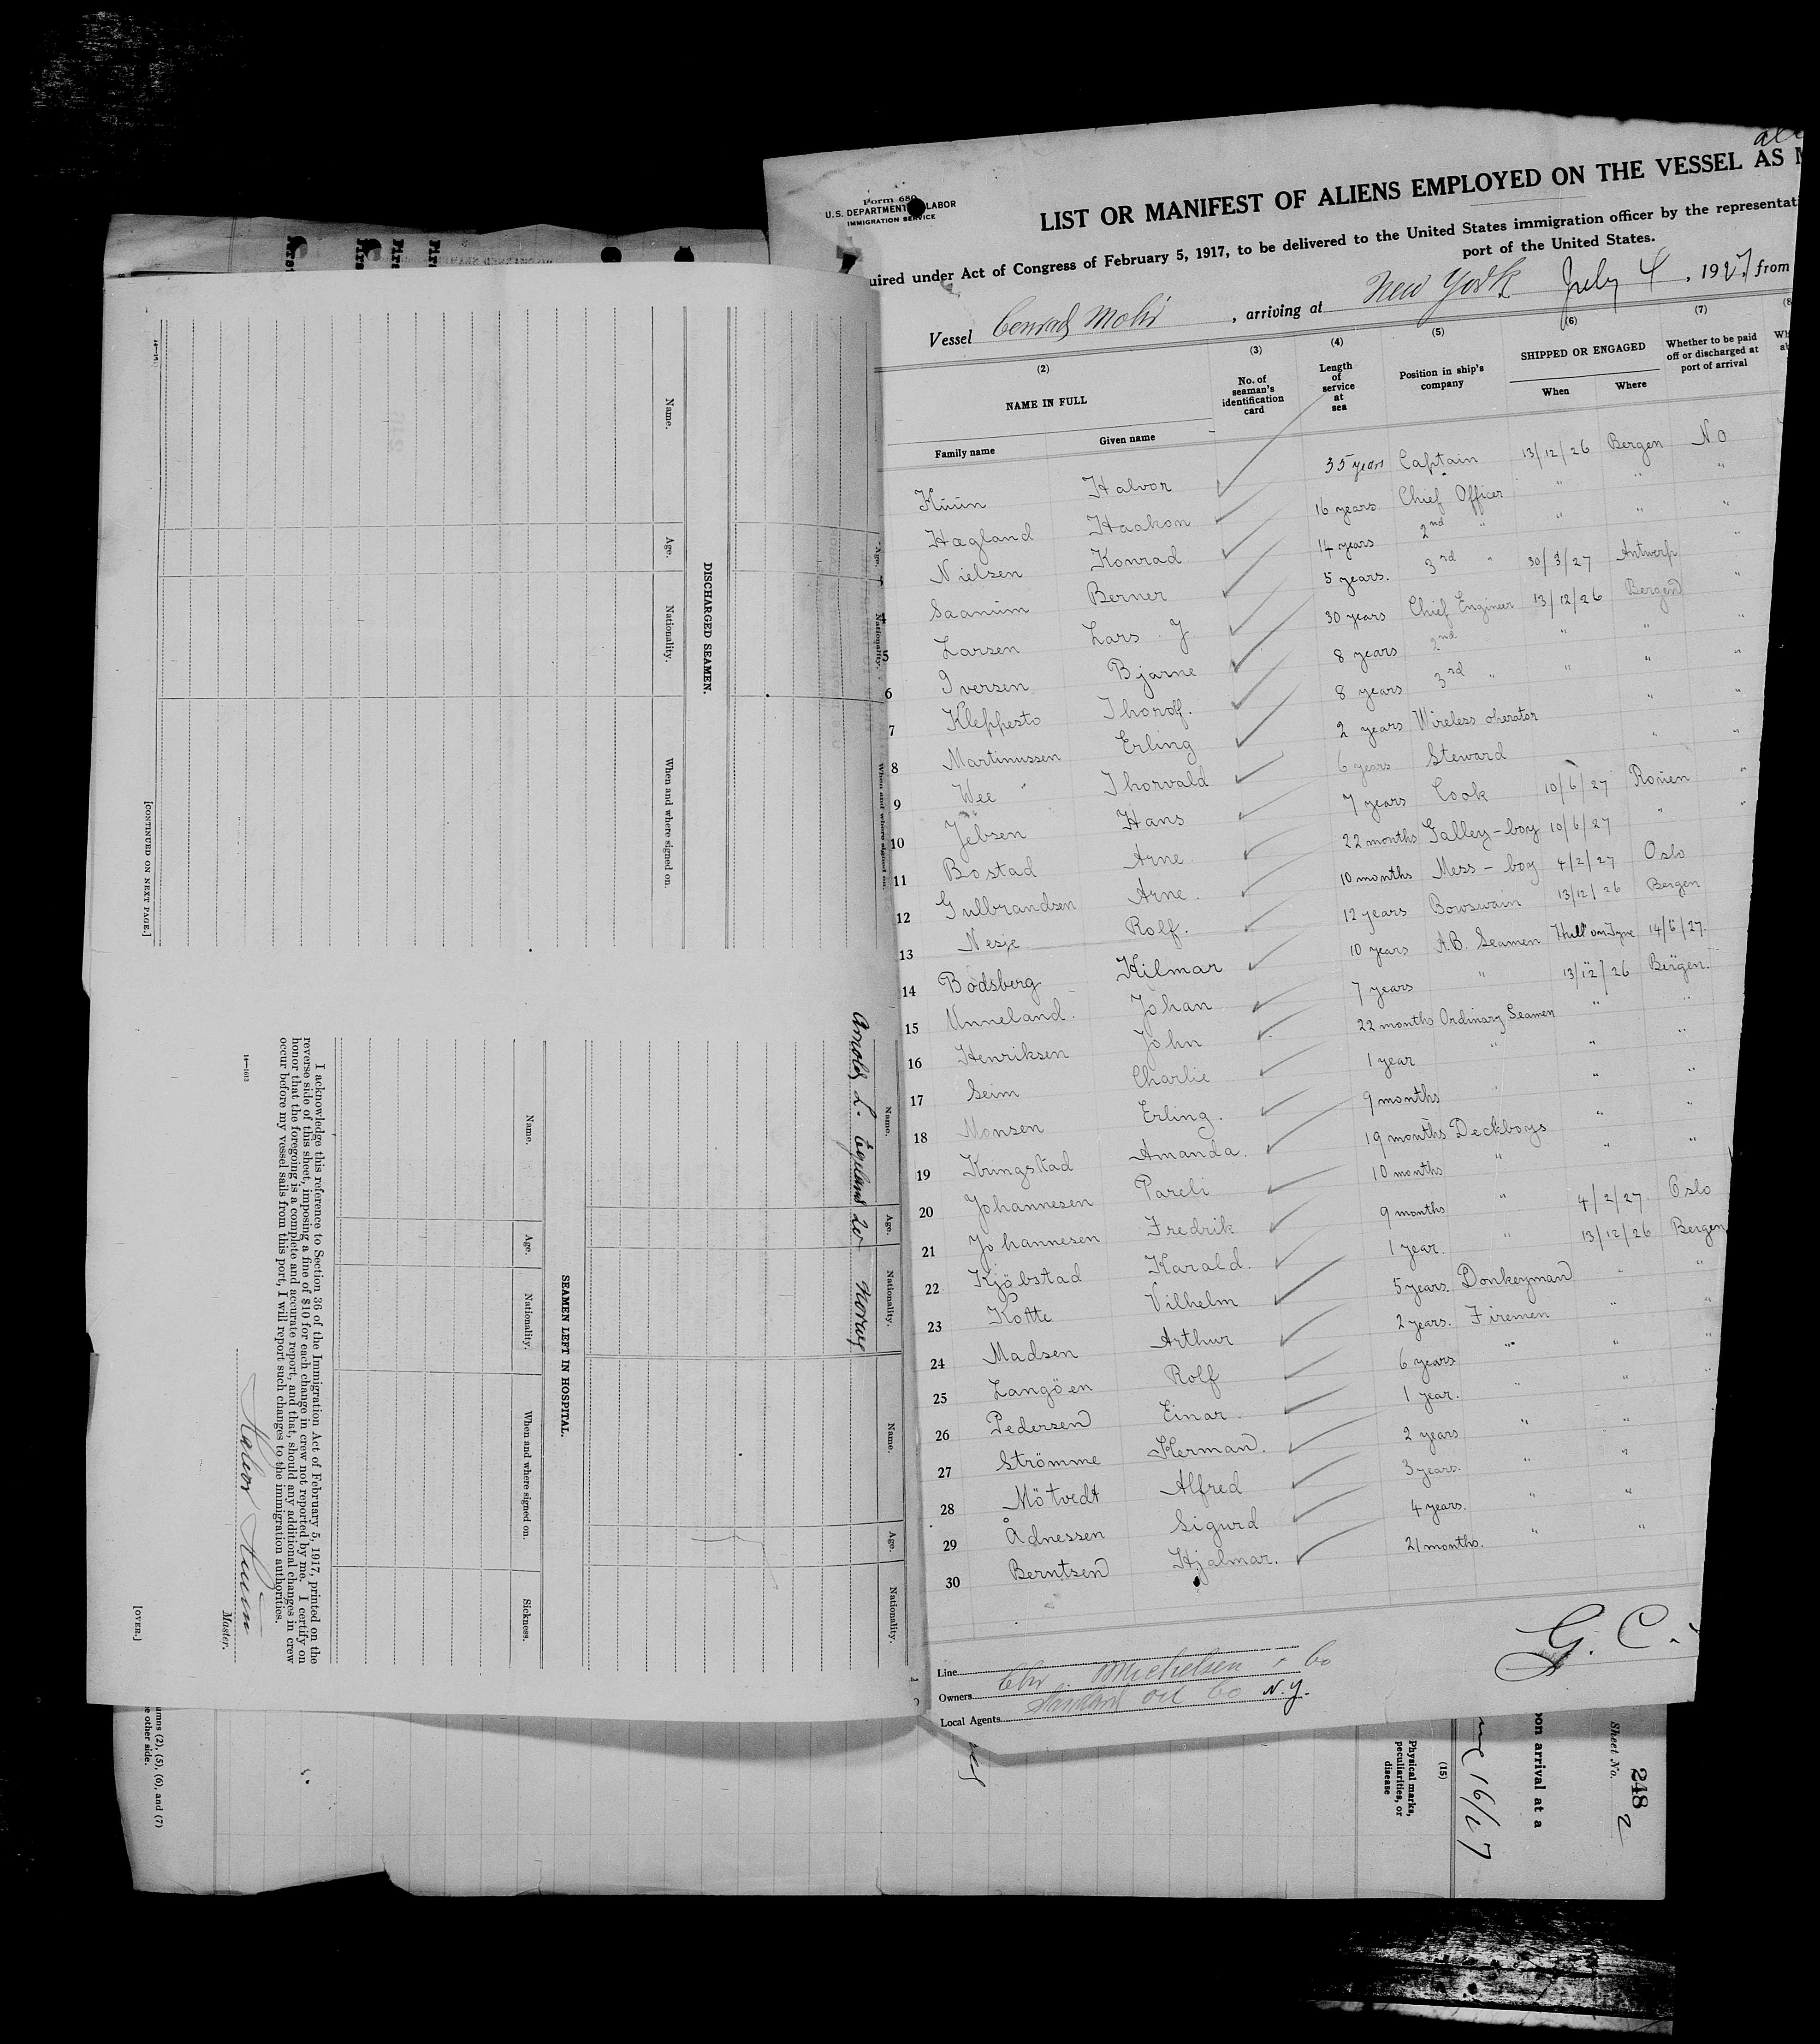 Form 680
U.S. DEPARTMENT OF LABOR
IMMIGRATION SERVICE
LIST OR MANIFEST OF ALIENS EMPLOYED ON THE VESSEL AS
uired under Act of Congress of February 5, 1917, to be delivered to the United States immigration officer by the representati
port of the United States.
Vessel Conrad Mohr, arriving at New York July 4, 1927, from
(2) (3) (4) (5) (6) (7) (8
NAME IN FULL No. of seaman's identification card Length of service at sea Position in ship's company SHIPPED OR ENGAGED Whether to be paid off or discharged at port of arrival
Family name Given name When Where
Kuün Halvor 35 years Captain 13/12/26 Bergen NO
Hægland Haakon 16 years Chief Officer " " "
Nielsen Konrad 14 years 2nd " " " "
Saanum Berner 5 years. 3rd " 30/3/27 Antwerp "
5 Larsen Lars J 30 years Chief Engineer 13/12/26 Bergen "
6 Iversen Bjarne 8 years 2nd " " "
7 Kleppesto Thorolf. 8 years 3rd " " " "
8 Martinussen Erling 2 years Wireless operator " "
9 Wee Thorvald 6 years Steward " "
10 Jebsen Hans 7 years Cook 10/6/27 Rouen "
11 Bostad Arne 22 months Galley-boy 10/6/27 " "
12 Gulbrandsen Arne. 10 months Mess-boy 4/2/27 Oslo
13 Nesje Rolf. 12 years Bowswain 13/12/26 Bergen
14 Bodsberg Hilmar 10 years A.B. Seamen Hull on Tyne 14/5/27.
15 Unneland. Johan 7 years " 13/12/26 Bergen.
16 Henriksen John 22 months Ordinary Seamen " "
17 Seim Charlie 1 year " " "
18 Monsen Erling. 9 months " " "
19 Kringstad Amanda. 19 months Deckboys " "
20 Johannesen Pareli 10 months " " "
21 Johannesen Fredrik 9 months " 4/2/27. Oslo
22 Kjöbstad Harald. 1 year. " 13/12/26 Bergen
23 Kotte Vilhelm 5 years. Donkeyman " "
24 Madsen Arthur 2 years. Firemen " "
25 Langöen Rolf 6 years " " "
26 Pedersen Einar 1 year. " " "
27 Strömme Herman. 2 years " "
28 Mötvedt Alfred 3 years. " "
29 Ådnessen Sigurd 4 years. " "
30 Berntsen Hjalmar. 21 months. " "
G. C.
Line
Owners Chr. Michelsen & Co
Local Agents Standard Oil Co N.Y.
Name. Age. Nationality. When and where signed on.
DISCHARGED SEAMEN.
Name. Age. Nationality. When and where signed on.
[CONTINUED ON NEXT PAGE.]
Name. Age. Nationality. Name. Age. Nationality.
Arnold L. Egeland 20 Norway
SEAMEN LEFT IN HOSPITAL.
Name. Age. Nationality. When and where signed on. Sickness.
I acknowledge this reference to Section 36 of the Immigration Act of February 5, 1917, printed on the
reverse side of this sheet, imposing a fine of $10 for each change in crew not reported by me. I certify on
honor that the foregoing is a complete and accurate report, and that, should any additional changes in crew
occur before my vessel sails from this port, I will report such changes to the immigration authorities.
Halvor Kuün
Master.
14—1613
[OVER.]
umns (2), (5), (6), and (7)
e other side.
248
2
Sheet No.
on arrival at a
16/27
(15)
Physical marks, peculiarities, or disease